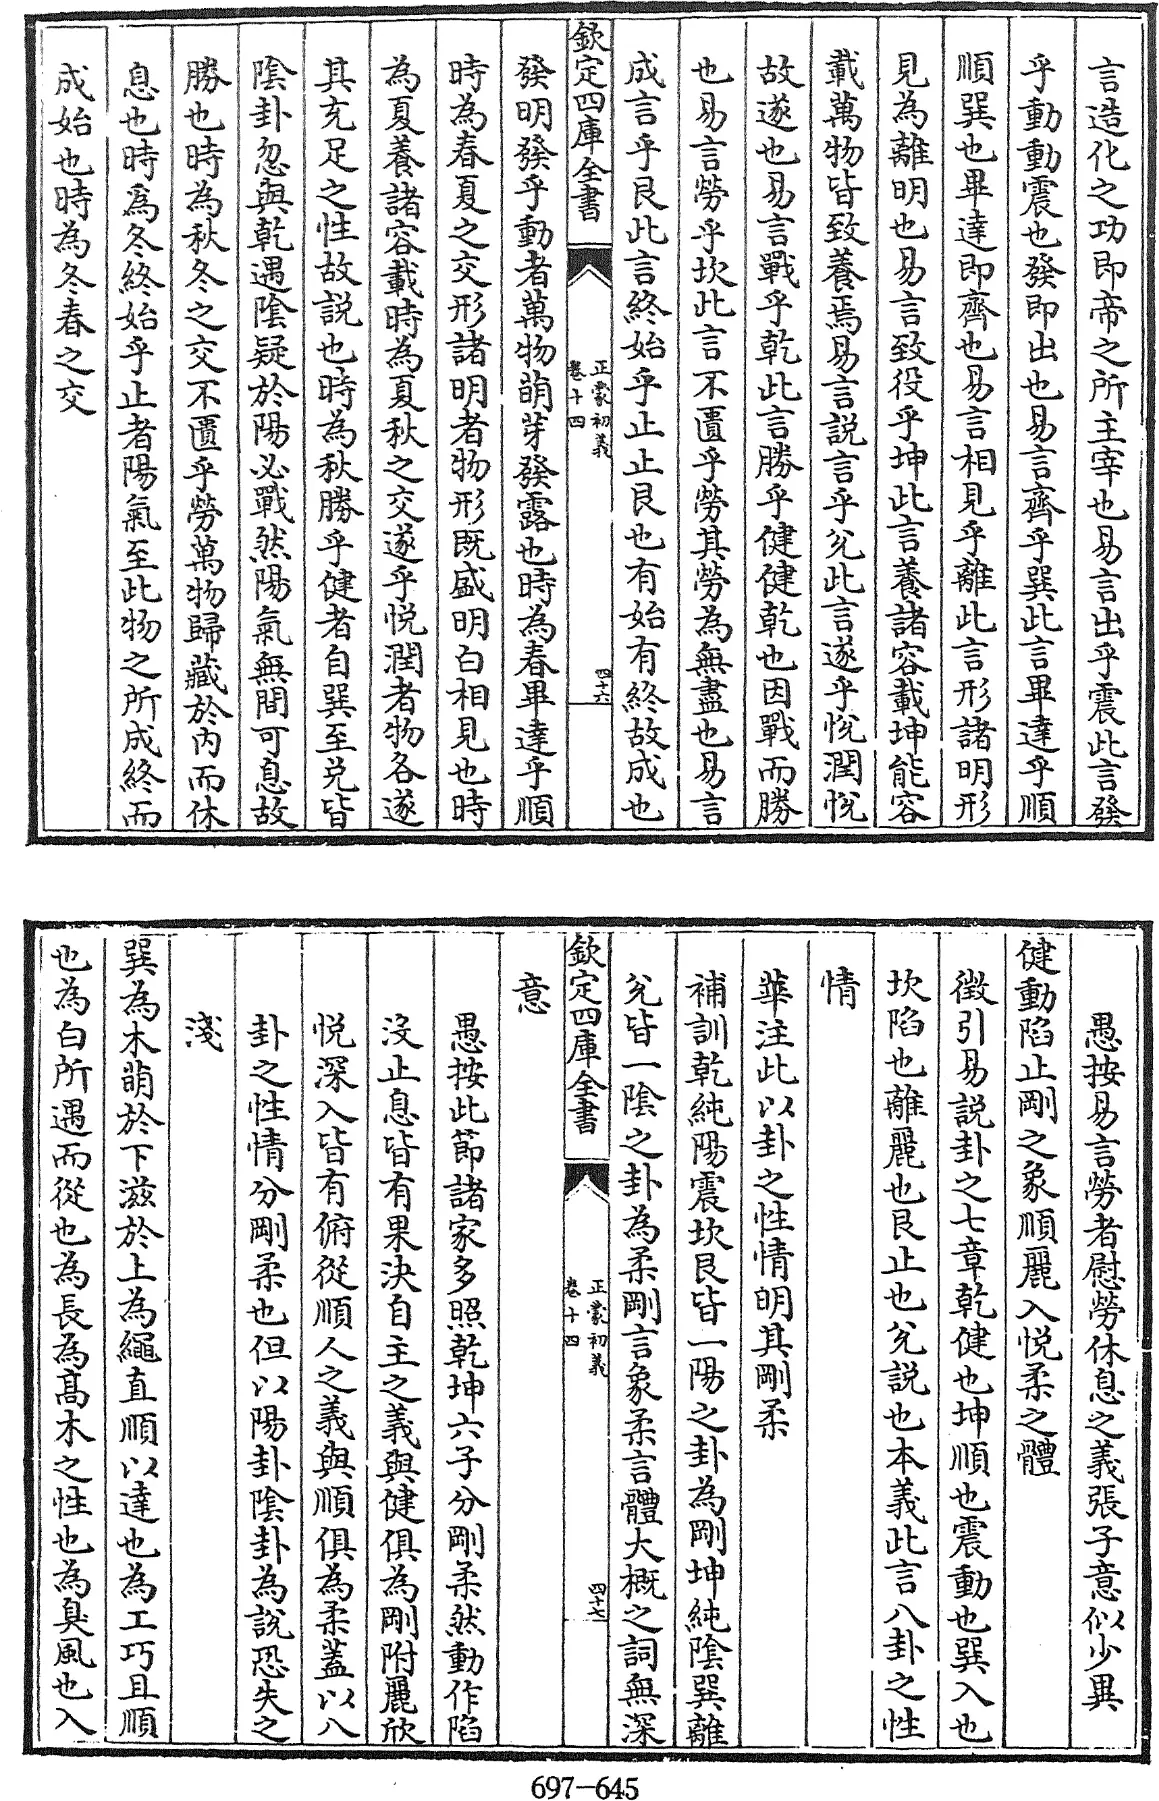 言造化之功即帝之所主宰也易言出乎震此言發
乎動動震也發即出也易言齊乎巽此言畢達乎順
順巽也畢達即齊也易言相見乎離此言形諸明形
見為離明也易言致役乎坤此言養諸容載坤能容
載萬物皆致養焉易言說言乎兊此言遂乎悅潤悅
故遂也易言戰乎乾此言勝乎健健乾也因戰而勝
也易言勞乎坎此言不匱乎勞其勞為無盡也易言
成言乎艮此言終始乎止止艮也有始有終故成也
欽定四庫全書
正蒙初義
卷十四
四十六
發明發乎動者萬物萌芽發露也時為春畢達乎順
時為春夏之交形諸明者物形既盛明白相見也時
為夏養諸容載時為夏秋之交遂乎悦潤者物各遂
其充足之性故説也時為秋勝乎健者自巽至兑皆
陰卦忽與乾遇陰疑於陽必戰然陽氣無間可息故
勝也時為秋冬之交不匱乎勞萬物歸藏於内而休
息也時爲冬終始乎止者陽氣至此物之所成終而
成始也時為冬春之交
愚按易言勞者慰勞休息之義張子意似少異
健動陷止剛之象順麗入悦柔之體
徵引易説卦之七章乾健也坤順也震動也巽入也
坎陷也離麗也艮止也兊説也本義此言八卦之性
情
華注此以卦之性情明其剛柔
補訓乾純陽震坎艮皆一陽之卦為剛坤純陰巽離
兊皆一陰之卦為柔剛言象柔言體大概之詞無深
欽定四庫全書
正蒙初義
卷十四
四十七
意
愚按此節諸家多照乾坤六子分剛柔然動作陷
沒止息皆有果決自主之義與健俱為剛附麗欣
悦深入皆有俯從順人之義與順俱為柔蓋以八
卦之性情分剛柔也但以陽卦陰卦為説恐失之
淺
巽為木萌於下滋於上為繩直順以達也為工巧且順
也為白所遇而從也為長為高木之性也為臭風也入
697-645